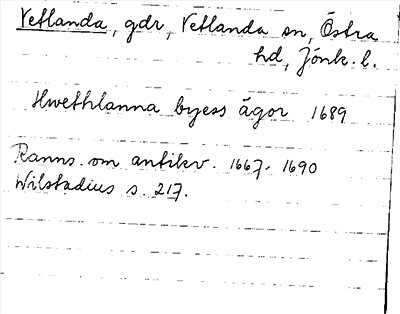 Vetlanda, gdr, Vetlanda sn, Östra
hd, Jönk. l.
Hwethlanna byess ägor 1689
Ranns. om antikv. 1667-1690
Wilstadius s. 217.